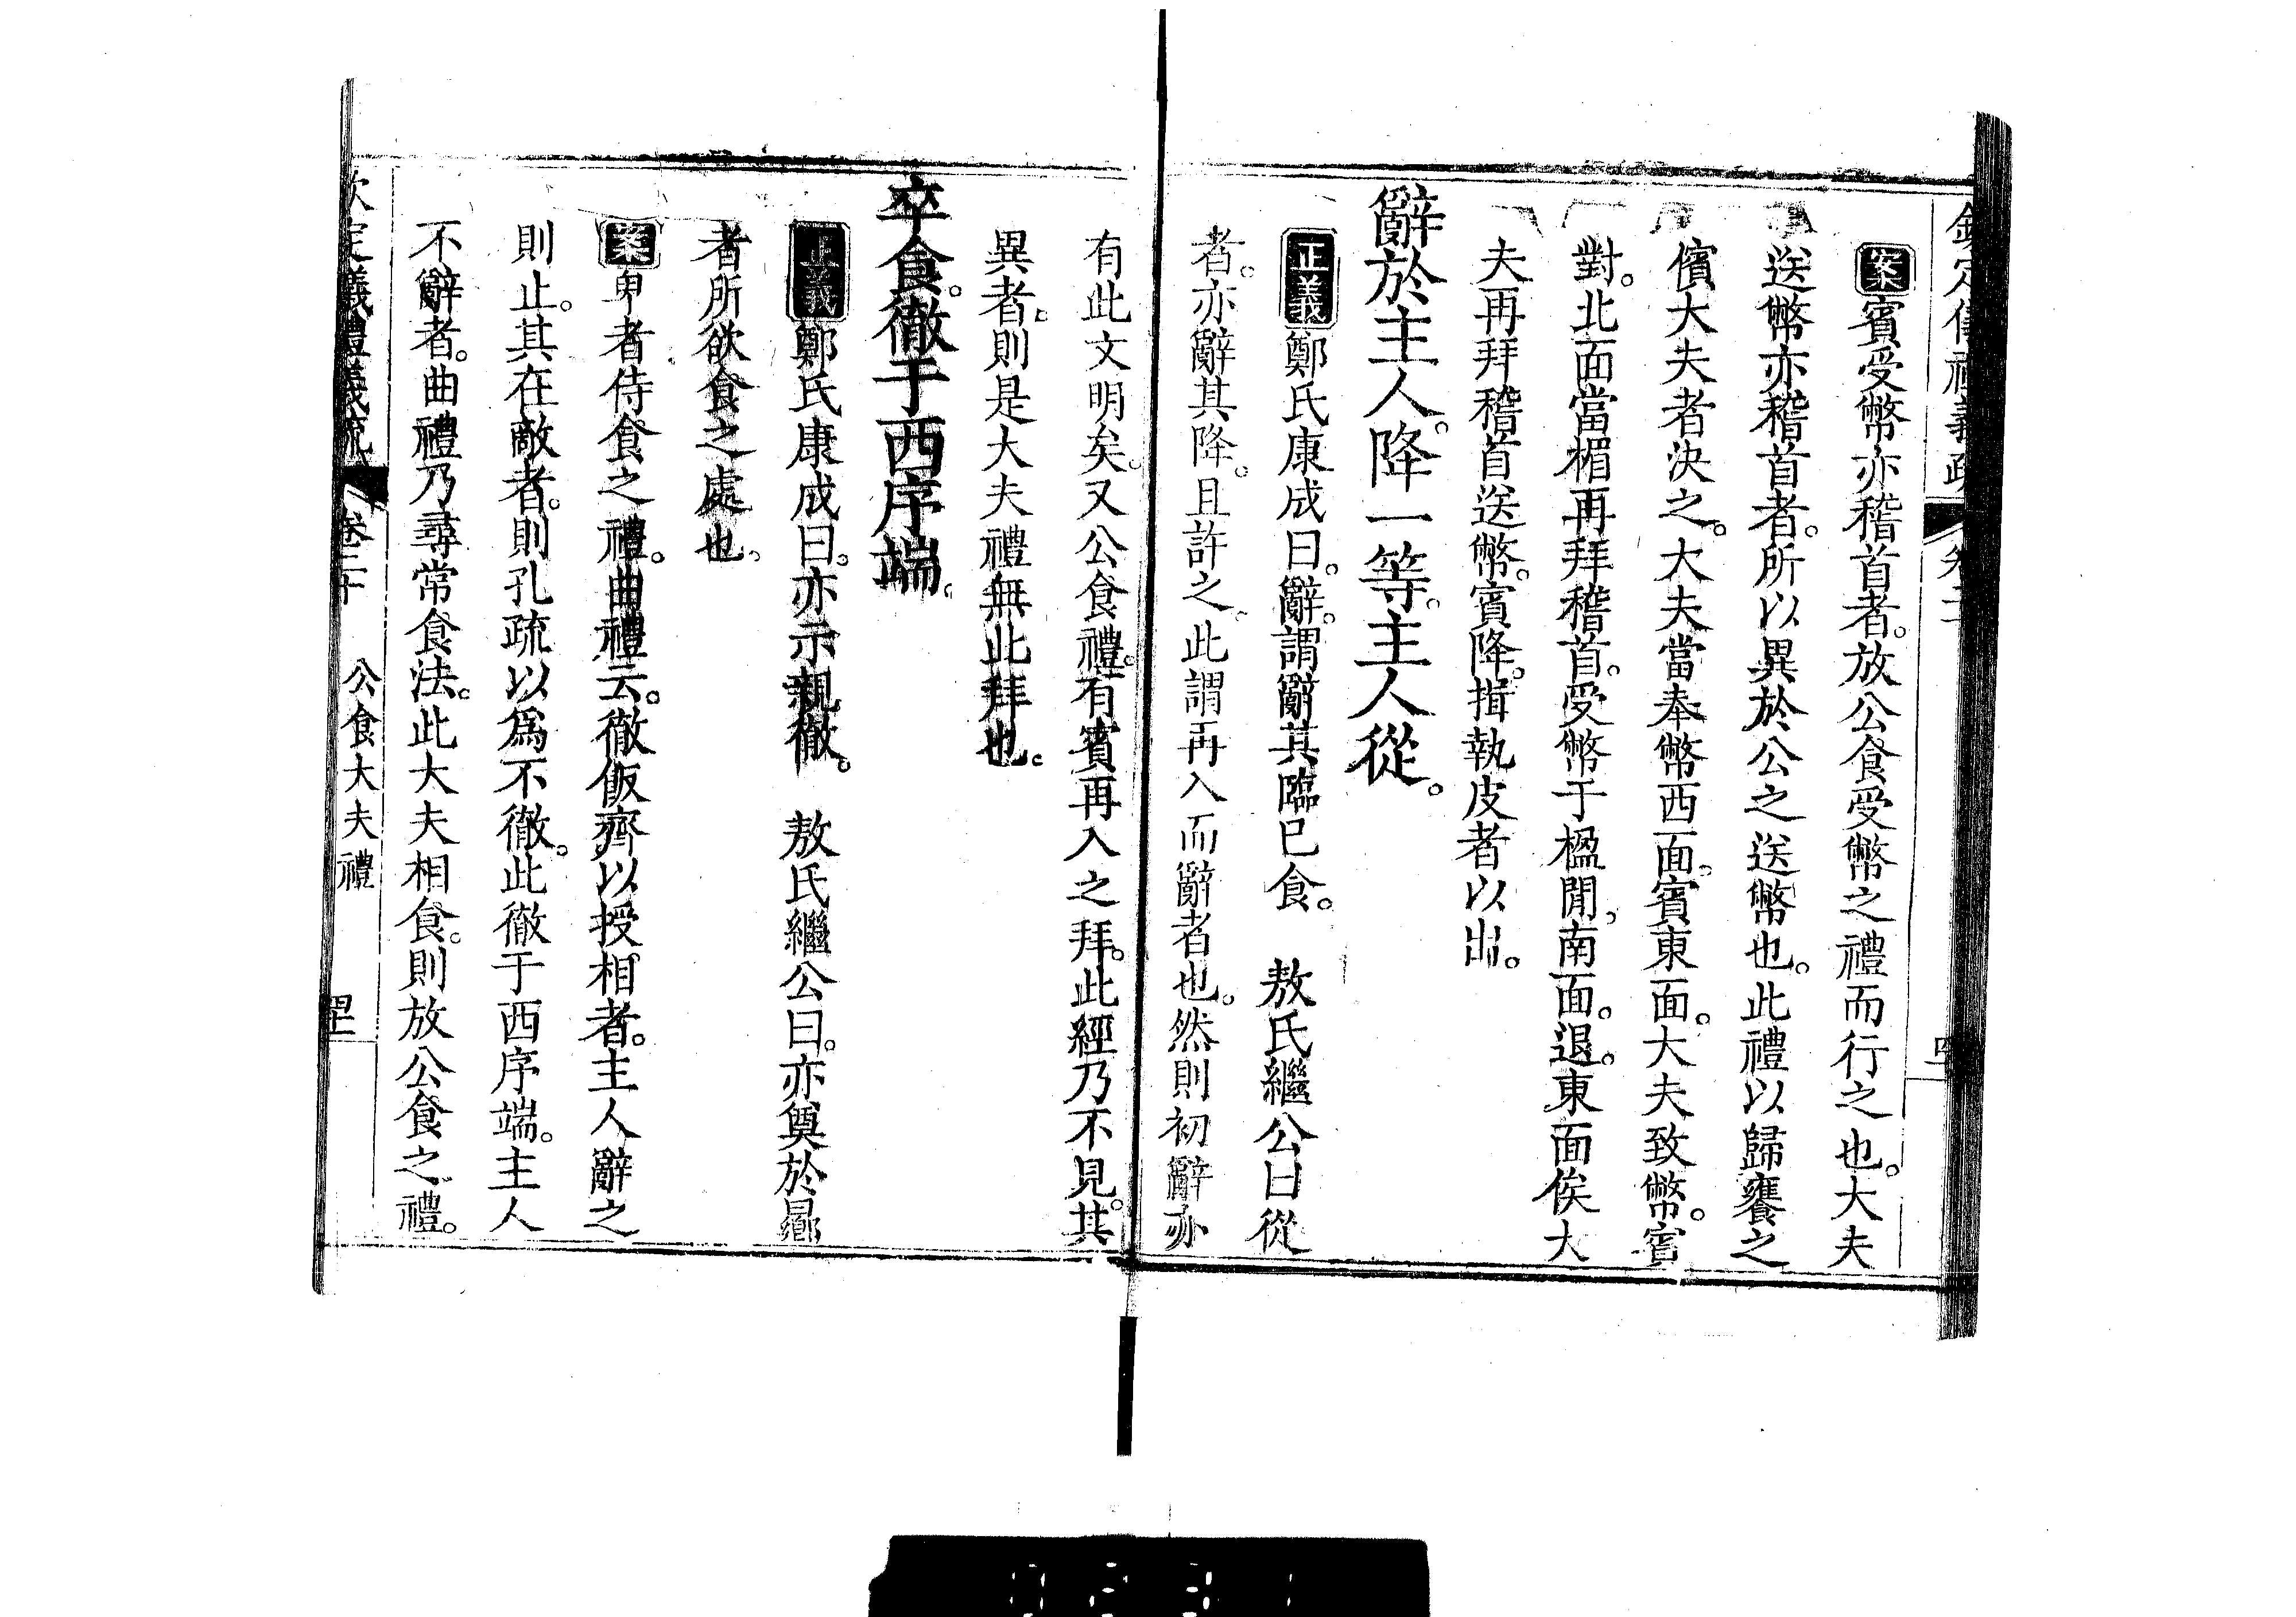 欽定儀禮義疏
案賓受幣亦稽首者。放公食受幣之禮而行之也。大夫
送幣亦稽首者。所以異於公之送幣也。此禮以歸饔之
儐大夫者決之。大夫當奉幣西面。賓東面。大夫致幣。賓
對。北面當楣再拜稽首。受幣于楹閒。南面。退。東面俟大
夫再拜稽首送幣。賓降。揖執皮者以出。
辭於主人。降一等。主人從。
正義鄭氏康成曰。辭。謂辭其臨已食。 敖氏繼公曰從
者。亦辭其降。且許之。此謂再入而辭者也。然則初辭亦
有此文明矣。又公食禮。有賓再入之拜。此經乃不見。其
異者。則是大夫禮無此拜也。
卒食。徹于西序端。
正義鄭氏康成曰。亦示親徹。 敖氏繼公曰。亦奠於曏
者所欲食之處也。
案卑者侍食之禮。曲禮云。徹飯齊以授相者。主人辭之
則止。其在敵者。則孔疏以爲不徹。此徹于西序端。主人
不辭者。曲禮乃尋常食法。此大夫相食。則放公食之禮。
欽定儀禮義疏 卷二十 公食大夫禮